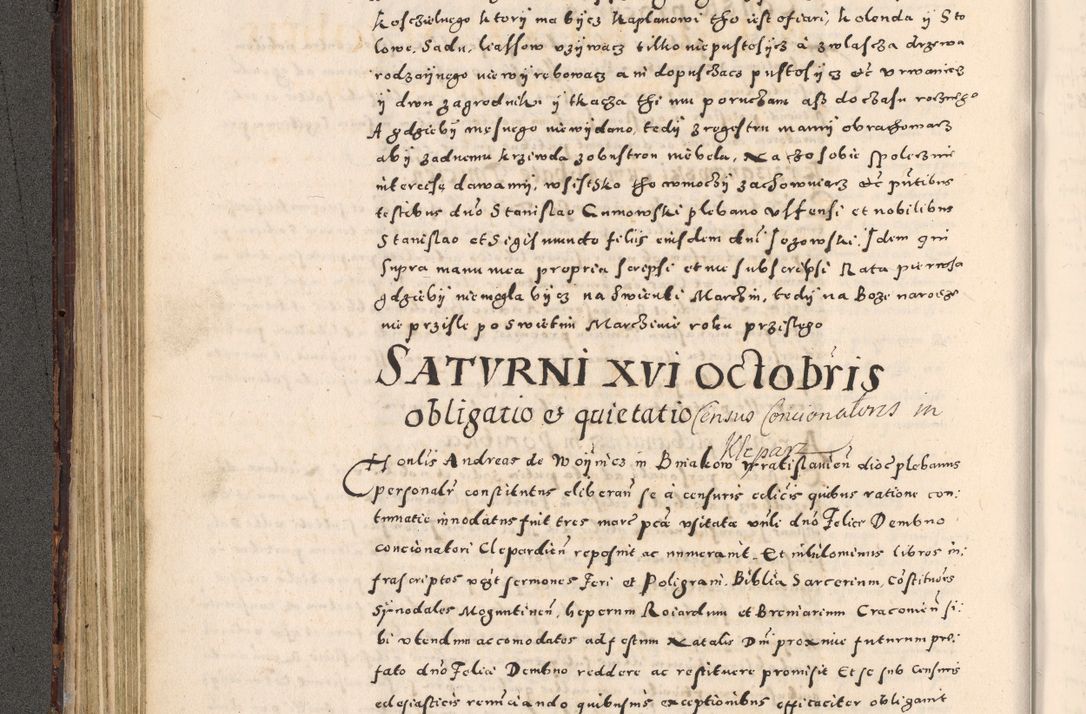 kosczielnego ktorÿ ma bÿcz kaplanowi tho iest ofiari, kolenda ÿ Sto
lowe, Sadu, liassow uzÿwacz tilko nie pustosÿcz à zwlascza drzewa
rodzaÿnego nie wÿrębowacz ani dopusczacz pustosÿcz etc
ÿ dwu zagrodniku ÿ tkacza thi mu poruczam asz do czasu
A gdziebÿ męsnego nie wÿdano, tedÿ z regestru mamÿ obrachowacz
abÿ zadnemu krziwda zobustron nie bela, Na czo sobie spolecznie
intercisę dawamÿ, wsistsko tho w moczÿ zachowuiącz etc pñtibus
testibus dño Stanislao Cumowski plebano et nobilibus
Stanislao et Sigismundo filiis eiusdem dñi Jozowski. Idem qui
supra manu mea propria scripsi et me subscripsi Rata pierwsza
gdziebÿ nie mogla bÿcz na Swientÿ Marczin, tedÿ na Boze narodze
nie przisle po Swiethim Marczinie roku przislego
SATVRNI XVI octobris
obligatio et quietatio Census Concionatoris in
Kleparz
Honlis Andreas de Woÿnicz in Bniakow wratislavien dioc plebanus
personalr constitutus eliberari se à censuris eclicis quibus ratione con:
tumatie innodatus fuit tres marc pcã usitata dño Felici Dembno
concionatori Clepardien reposuit ac numeravit. Et nihilominus libros in:
frascriptos vdzt sermones Feri et Poligrani, Biblia Sarcerium, Cõstitutões
Sÿnodales Moguntinen, heperum Roiardum et Breviarium Cracovien si:
bi utendum accomodatos ad festum Natalis Dni proxime futurum pre:
fato dño Felici Dembno reddere ac restituere promisit Et se sub censuris
eclesiasticis renunciando quibusvis exceptionibus efficaciter obligavit